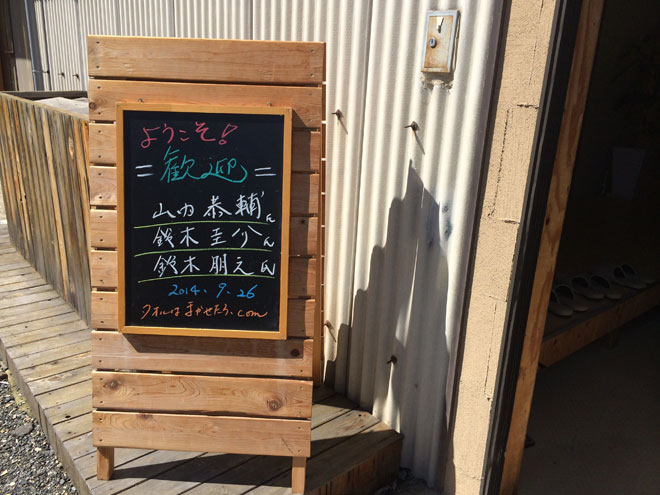 ようこそ!
=歓迎=
山内恭輔氏
鈴木圭介氏
鈴木朋之氏
2014.9.26
タオルはまかせたろ.com